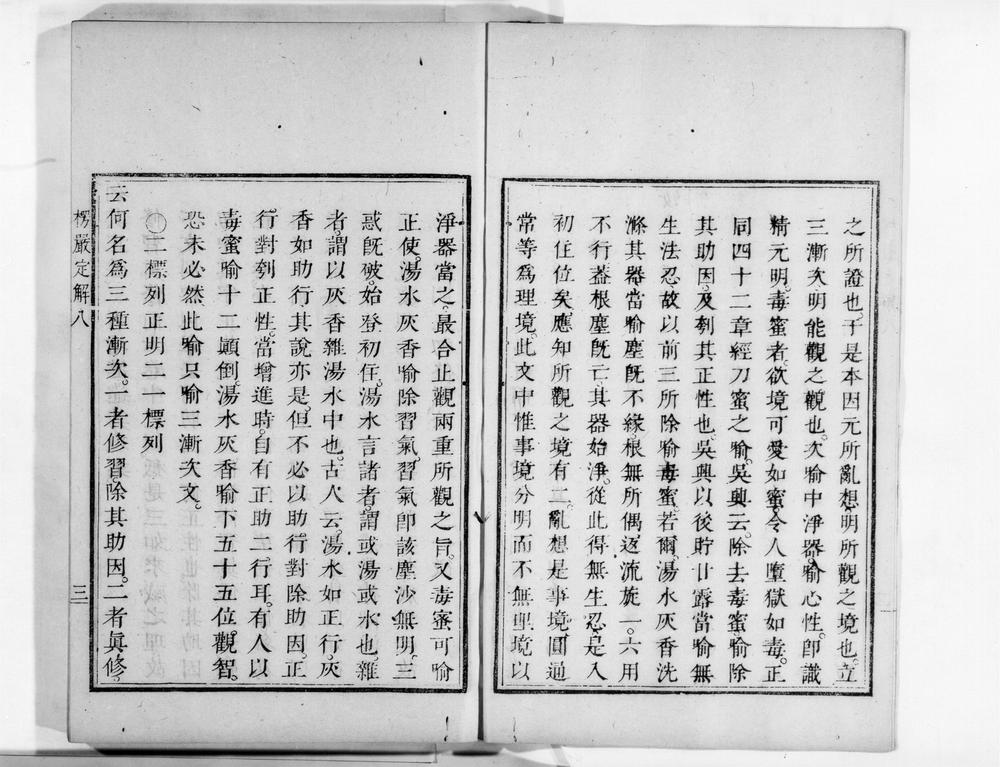 之所證也。于是本因元所亂想明所觀之境也。立
三漸次明能觀之觀也。次喻中淨器喻心性。卽識
精元明。毒蜜者。欲境可愛如蜜。令人墮獄如毒。正
同四十二章經刀蜜之喻。吳興云。除去毒蜜。喻除
其助因。及刳其正性也。吳興以後貯甘露當喻無
生法忍。故以前三所除喻毒蜜。若爾。湯水灰香洗
滌其器。當喻塵旣不緣。根無所偶。返流旋一。六用
不行。蓋根塵旣亡。其器始淨。從此得無生忍。是入
初住位矣。應知所觀之境有二。亂想是事境。圓通
常等爲理境。此文中惟事境分明。而不無理境。以
淨器當之。最合止觀兩重所觀之旨。又毒蜜可喻
正使。湯水灰香喻除習氣。習氣卽該塵沙無明。三
惑旣破。始登初住。湯水言諸者。謂或湯或水也。雜
者。謂以灰香雜湯水中也。古人云。湯水如正行。灰
香如助行。其說亦是。但不必以助行對除助因。正
行對刳正性。當增進時。自有正助二行耳。有人以
毒蜜喻十二顚倒。湯水灰香喻下五十五位觀智。
恐未必然。此喻只喻三漸次文。
二標列正明二一標列
云何名爲三種漸次。一者修習除其助因。二者眞修。
楞嚴定解八
三